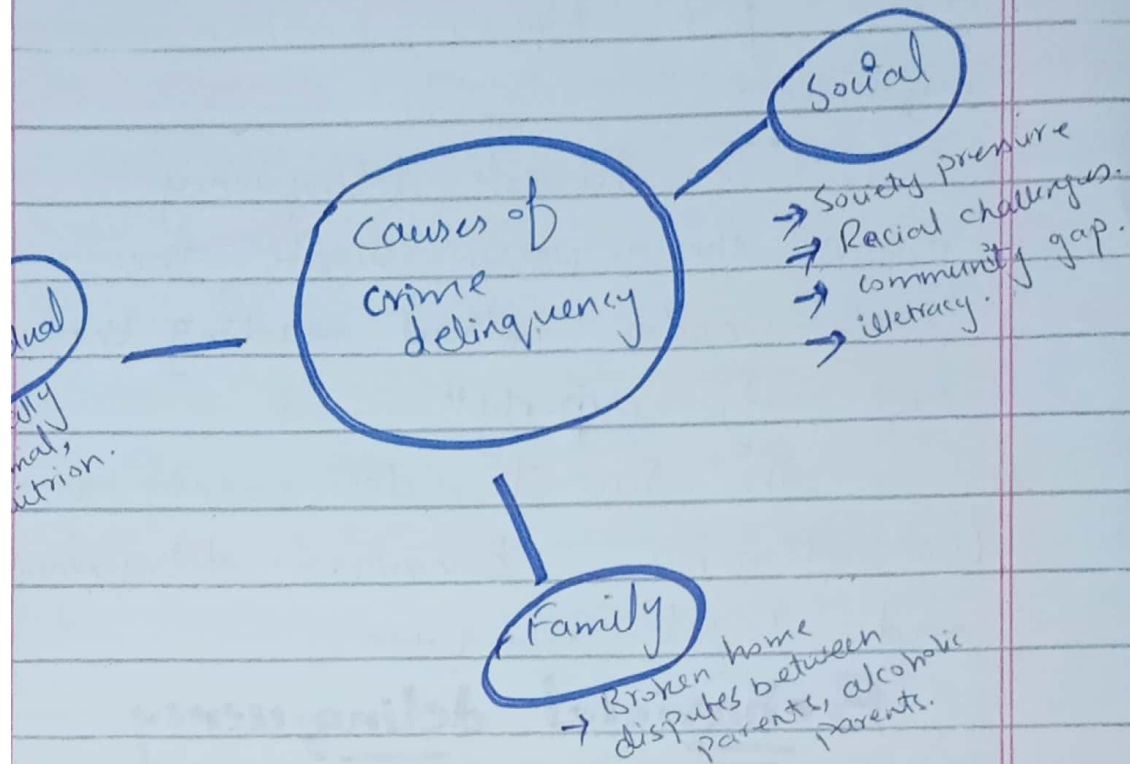 Social
→ Society pressure
→ Racial challenges.
→ community gap.
→ illetracy.
causes of
crime
delinquency
dual
ally
nal,
utrion.
Family
→ Broken home
disputes between
parents, alcoholic
parents.